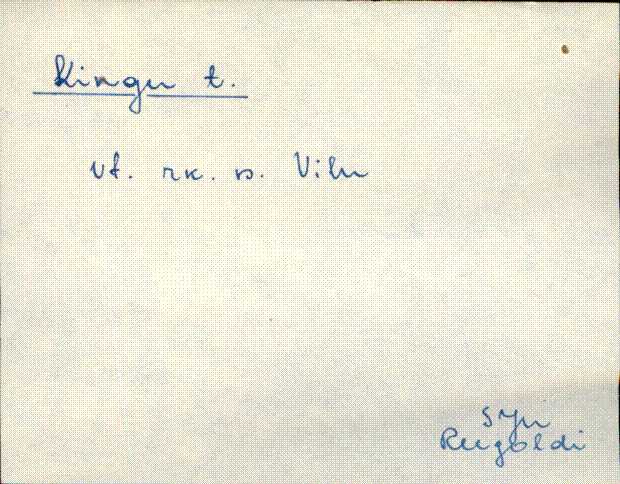 Kingu t.
vt. rk. s. Vilu
SJn
Reegoldi